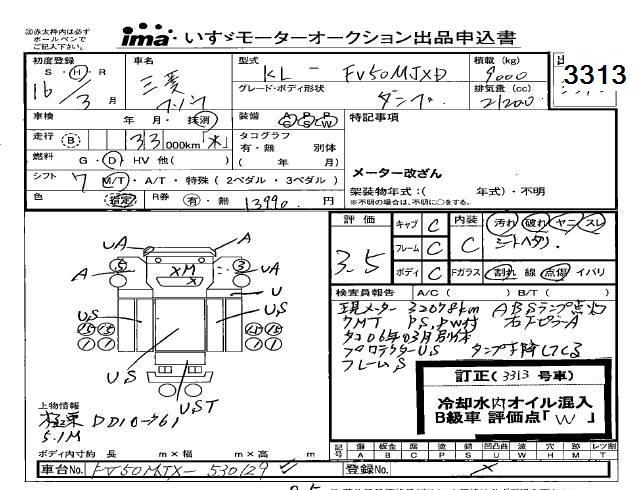 ③赤太枠内は必ず
ボールペンで
ご記入下さい。
ima いすゞモーターオークション出品申込書
初度登録 車名 型式 積載 (kg)
S・H・R 三菱 KL - FV50MJXD 9000
グレード・ボディ形状 排気量 (cc)
16/3月 ダンプ 21200
3313
車検 年 月・抹消 装備 特記事項
走行 Ⓑ 33000km「不」 タコグラフ
有・無 別体
燃料 G・D・HV 他( ) ( 年 月)
メーター改ざん
シフト 7 M/T・A/T・特殊 (2ペダル・3ペダル)
架装物年式:( 年式)・不明
※不明の場合は、不明に○をする。
色 指定 R券 有・無 13990 円
評価 キャブ C 内装 汚れ 破れ ヤニ スレ
3.5 フレーム C C シートヘタリ.
ボディ C Fガラス 割れ 線 点傷 イバリ
検査員報告 A/C ( ) B/T ( )
現メーター 33078km ABSランプ点灯
7MT PS,PW付 右下ピラーA
タコ06年03月別体
プロテクターU,S
フレームS
UA A
5 3
A XM UA
U
U,S U,S
U,S
UST
訂正(3313号車)
冷却水内オイル混入
B級車 評価点「W」
上物情報
極東 DD10-61
5.1M
ボディ内寸約 長 m×幅 m×高 m
記号 傷 板金 腐 塗 錆 凹凸曲 凹 穴 跡 レツ割
A B C P S U W H M T
車台No. FV50MJX-530129
登録No.